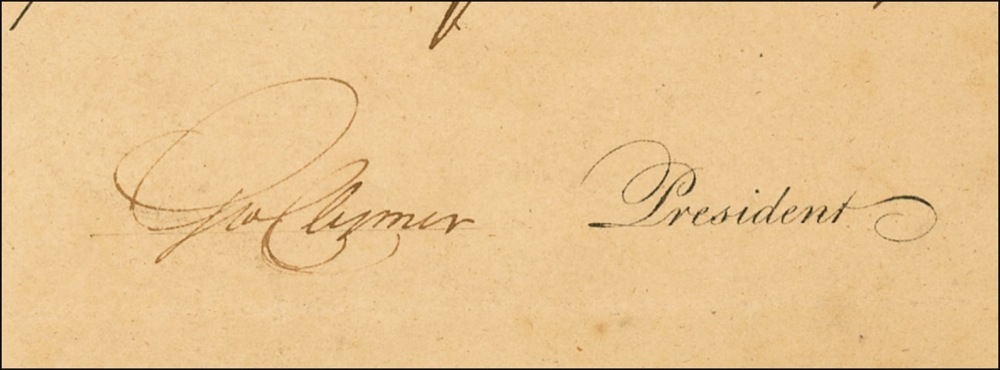 Geo Clymer President